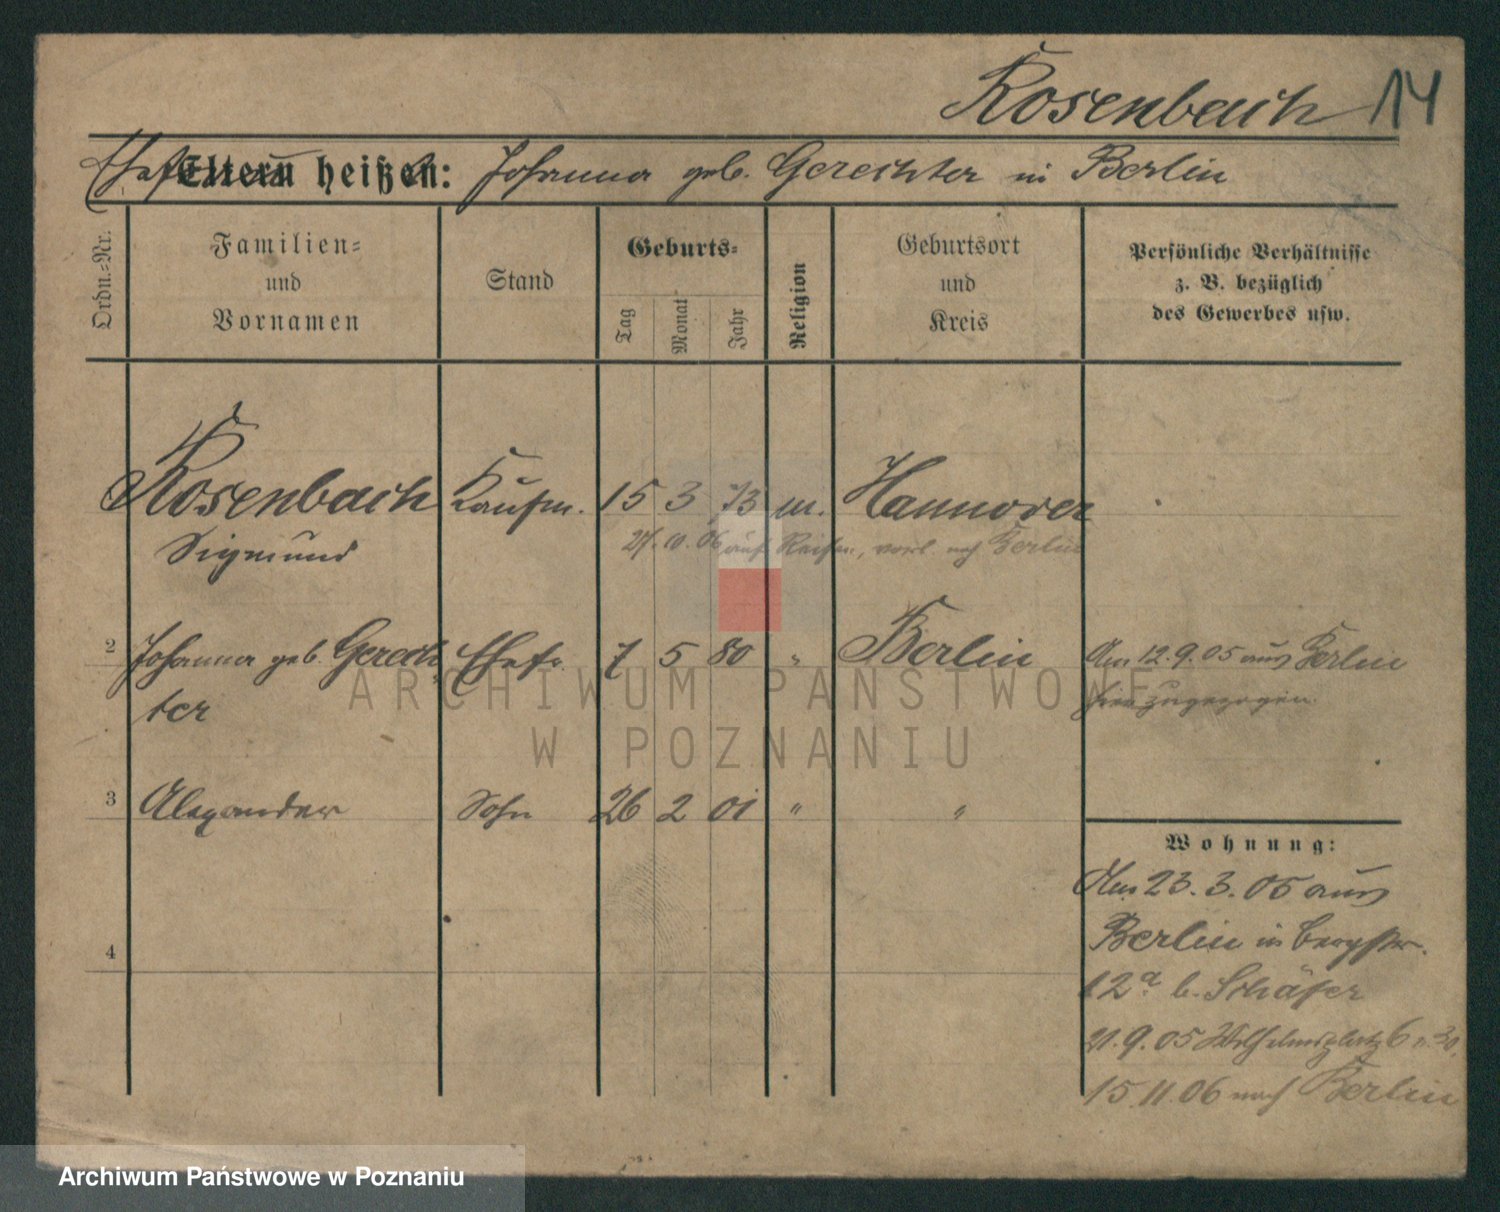 Rosenbach 14
Ehefrau Eltern heißen: Johanna geb. Gerechter in Berlin
Ordn.-Nr.
Familien-
und
Vornamen
Stand
Geburts-
Tag
Monat
Jahr
Religion
Geburtsort
und
Kreis
Persönliche Verhältnisse
z. B. bezüglich
des Gewerbes usw.
Rosenbach Kaufm. 15 3 73 m. Hannover
Sigmund
27.10.06 auf Reisen, vorl. nach Berlin
2 Johanna geb. Gerech- Ehefr. 7 5 80 " Berlin Am 12.9.05 aus Berlin
ter
hier zugezogen.
3 Alexander Sohn 26 2 01 " "
4
Wohnung:
Am 23.3.05 aus
Berlin in Bergstr.
12a b. Schäfer
21.9.05 Wilhelmsplatz 6
15.11.06 nach Berlin
ARCHIWUM PAŃSTWOWE
W POZNANIU
Archiwum Państwowe w Poznaniu